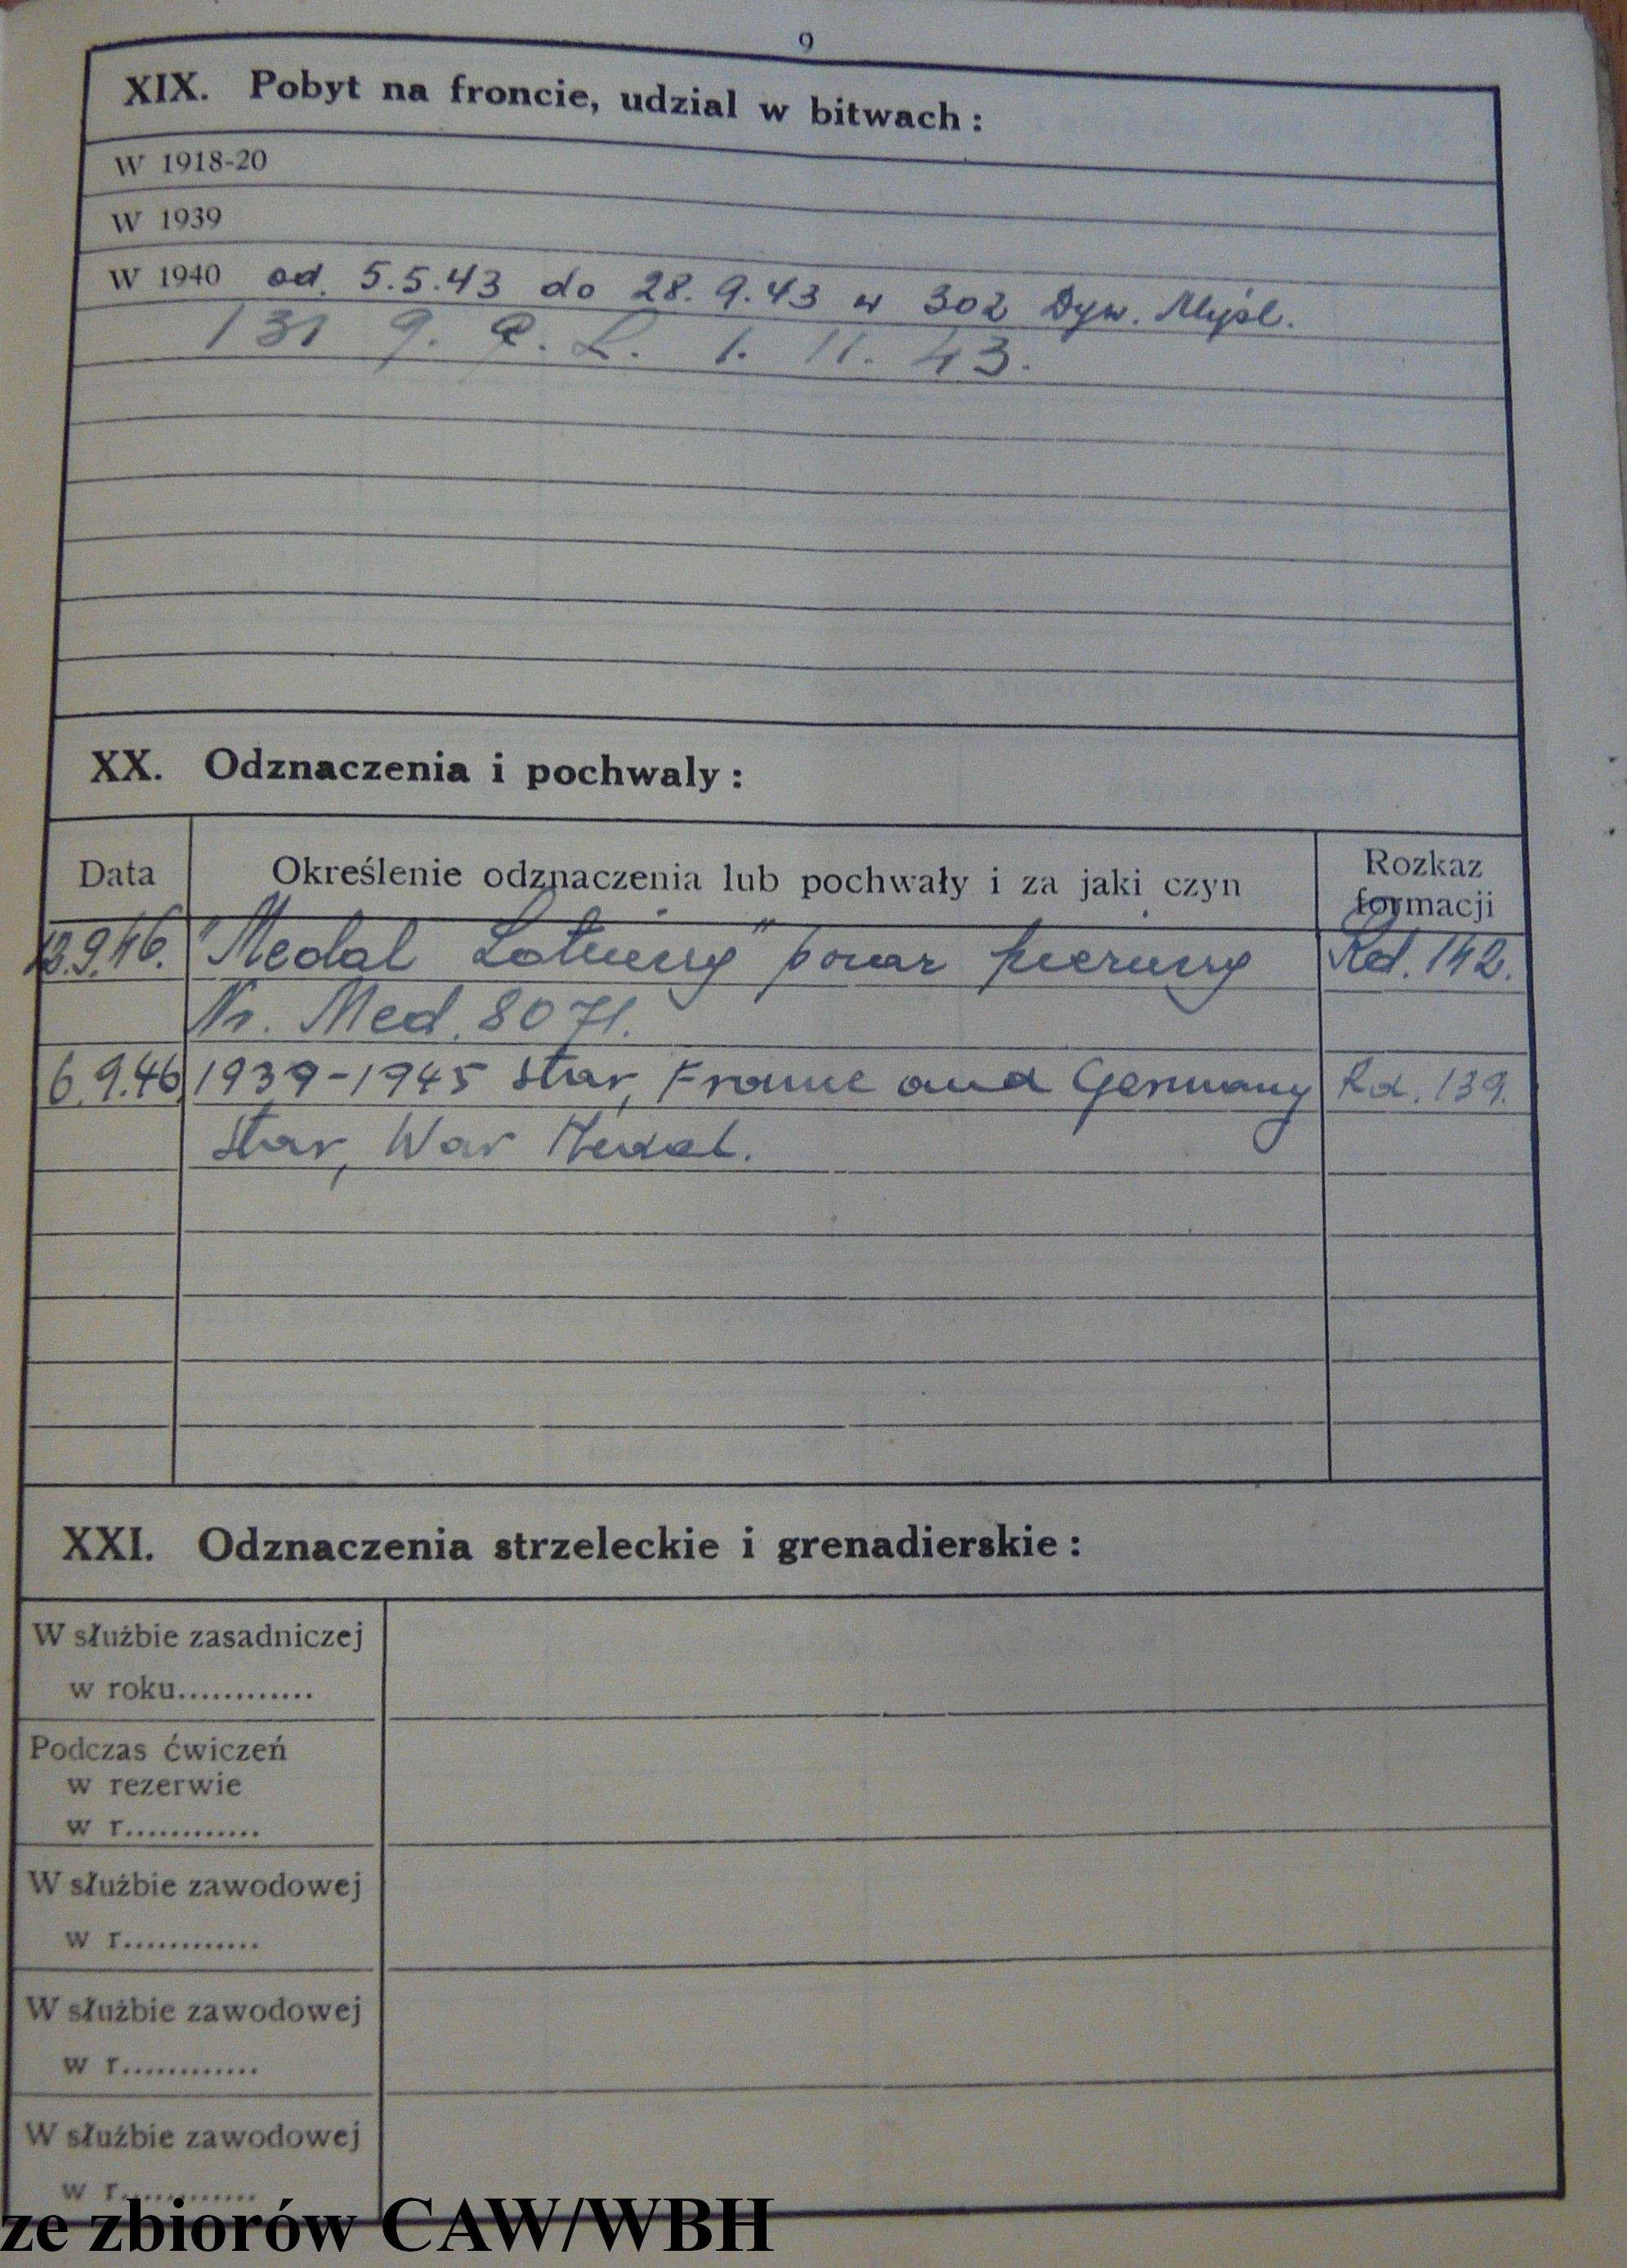 9
XIX. Pobyt na froncie, udzial w bitwach :
W 1918-20
W 1939
W 1940 od. 5.5.43 do 28.9.43 w 302 Dyw. Myśl.
131 9. L. 1. 11. 43.
XX. Odznaczenia i pochwaly :
Data Określenie odznaczenia lub pochwały i za jaki czyn Rozkaz
formacji
"Medal Lotniczy" poraz pierwszy Rd. 142.
Nr. Med. 8071.
6.9.46. 1939-1945 Star, France and Germany Rd. 139.
Star, War Medal.
XXI. Odznaczenia strzeleckie i grenadierskie :
W służbie zasadniczej
w roku............
Podczas ćwiczeń
w rezerwie
w r............
W służbie zawodowej
w r............
W służbie zawodowej
w r............
W służbie zawodowej
w r............
ze zbiorów CAW/WBH